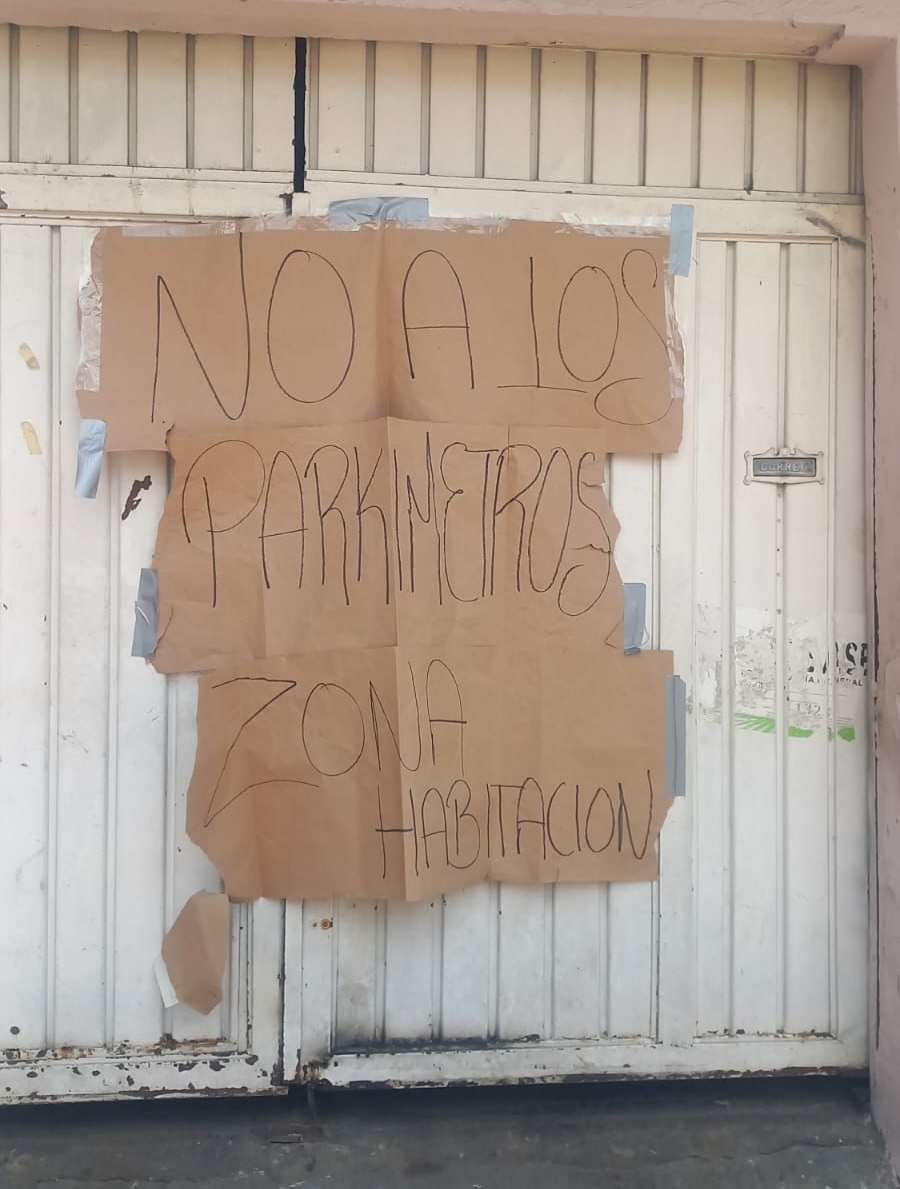 NO A LOS
PARKIMETROS
ZONA
HABITACION
CORREO